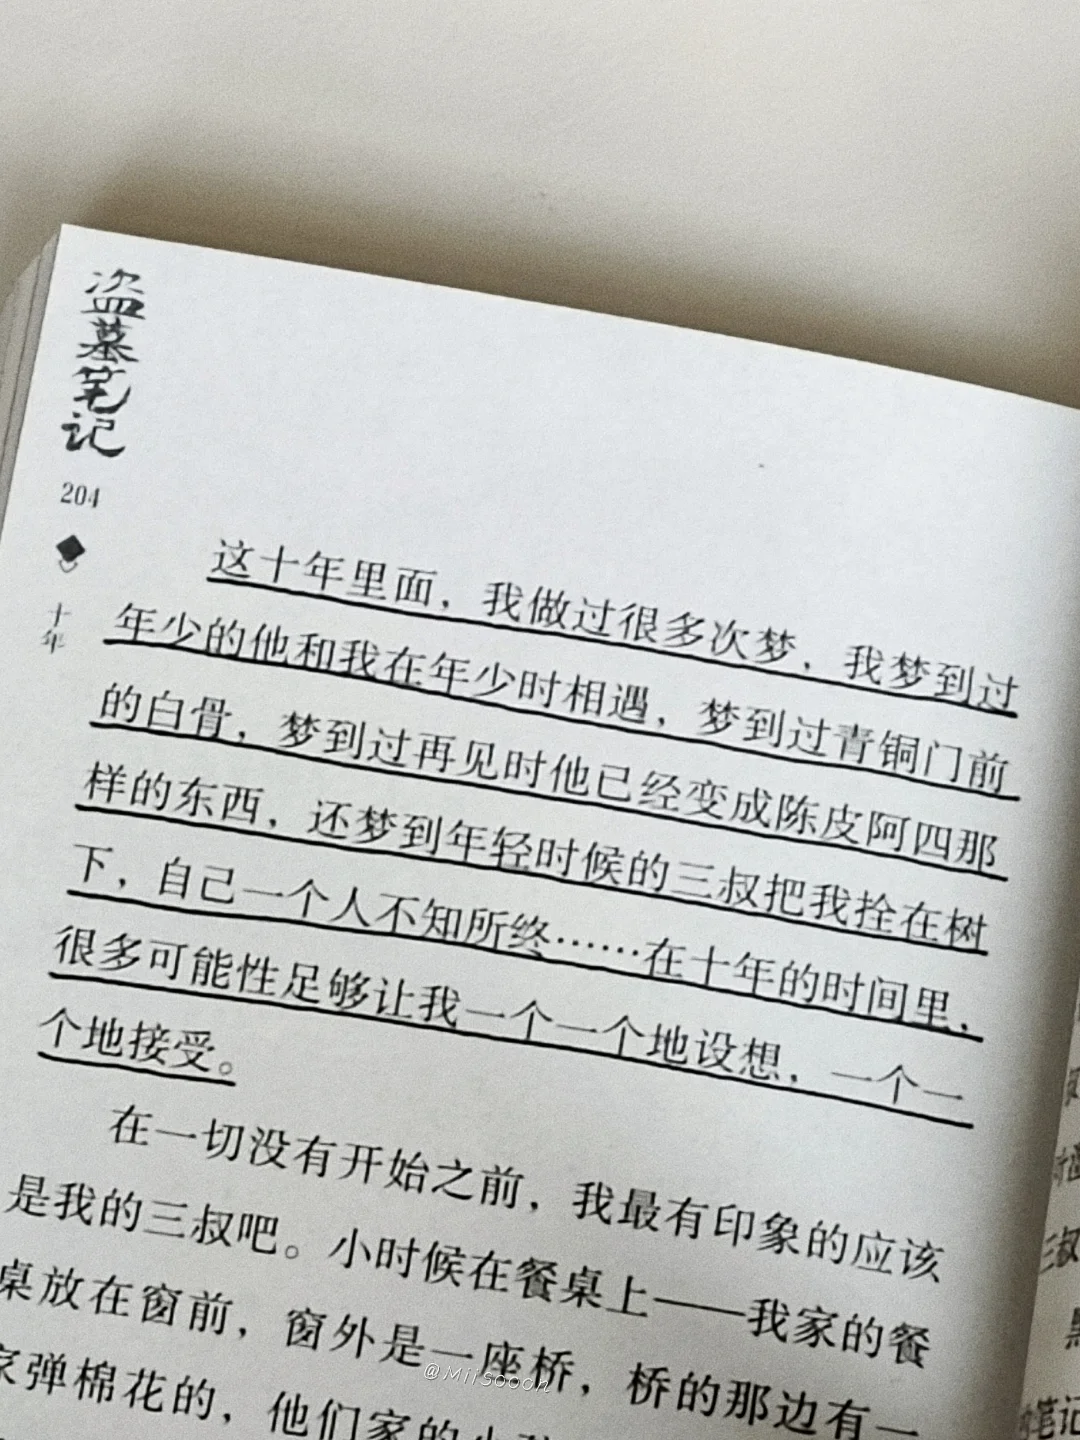 盗墓笔记
204
十年
这十年里面，我做过很多次梦，我梦到过
年少的他和我在年少时相遇，梦到过青铜门前
的白骨，梦到过再见时他已经变成陈皮阿四那
样的东西，还梦到年轻时候的三叔把我拴在树
下，自己一个人不知所终……在十年的时间里，
很多可能性足够让我一个一个地设想，一个一
个地接受。
在一切没有开始之前，我最有印象的应该
是我的三叔吧。小时候在餐桌上——我家的餐
桌放在窗前，窗外是一座桥，桥的那边有一
家弹棉花的，他们家的小
三叔
笔记
@Miisoooh